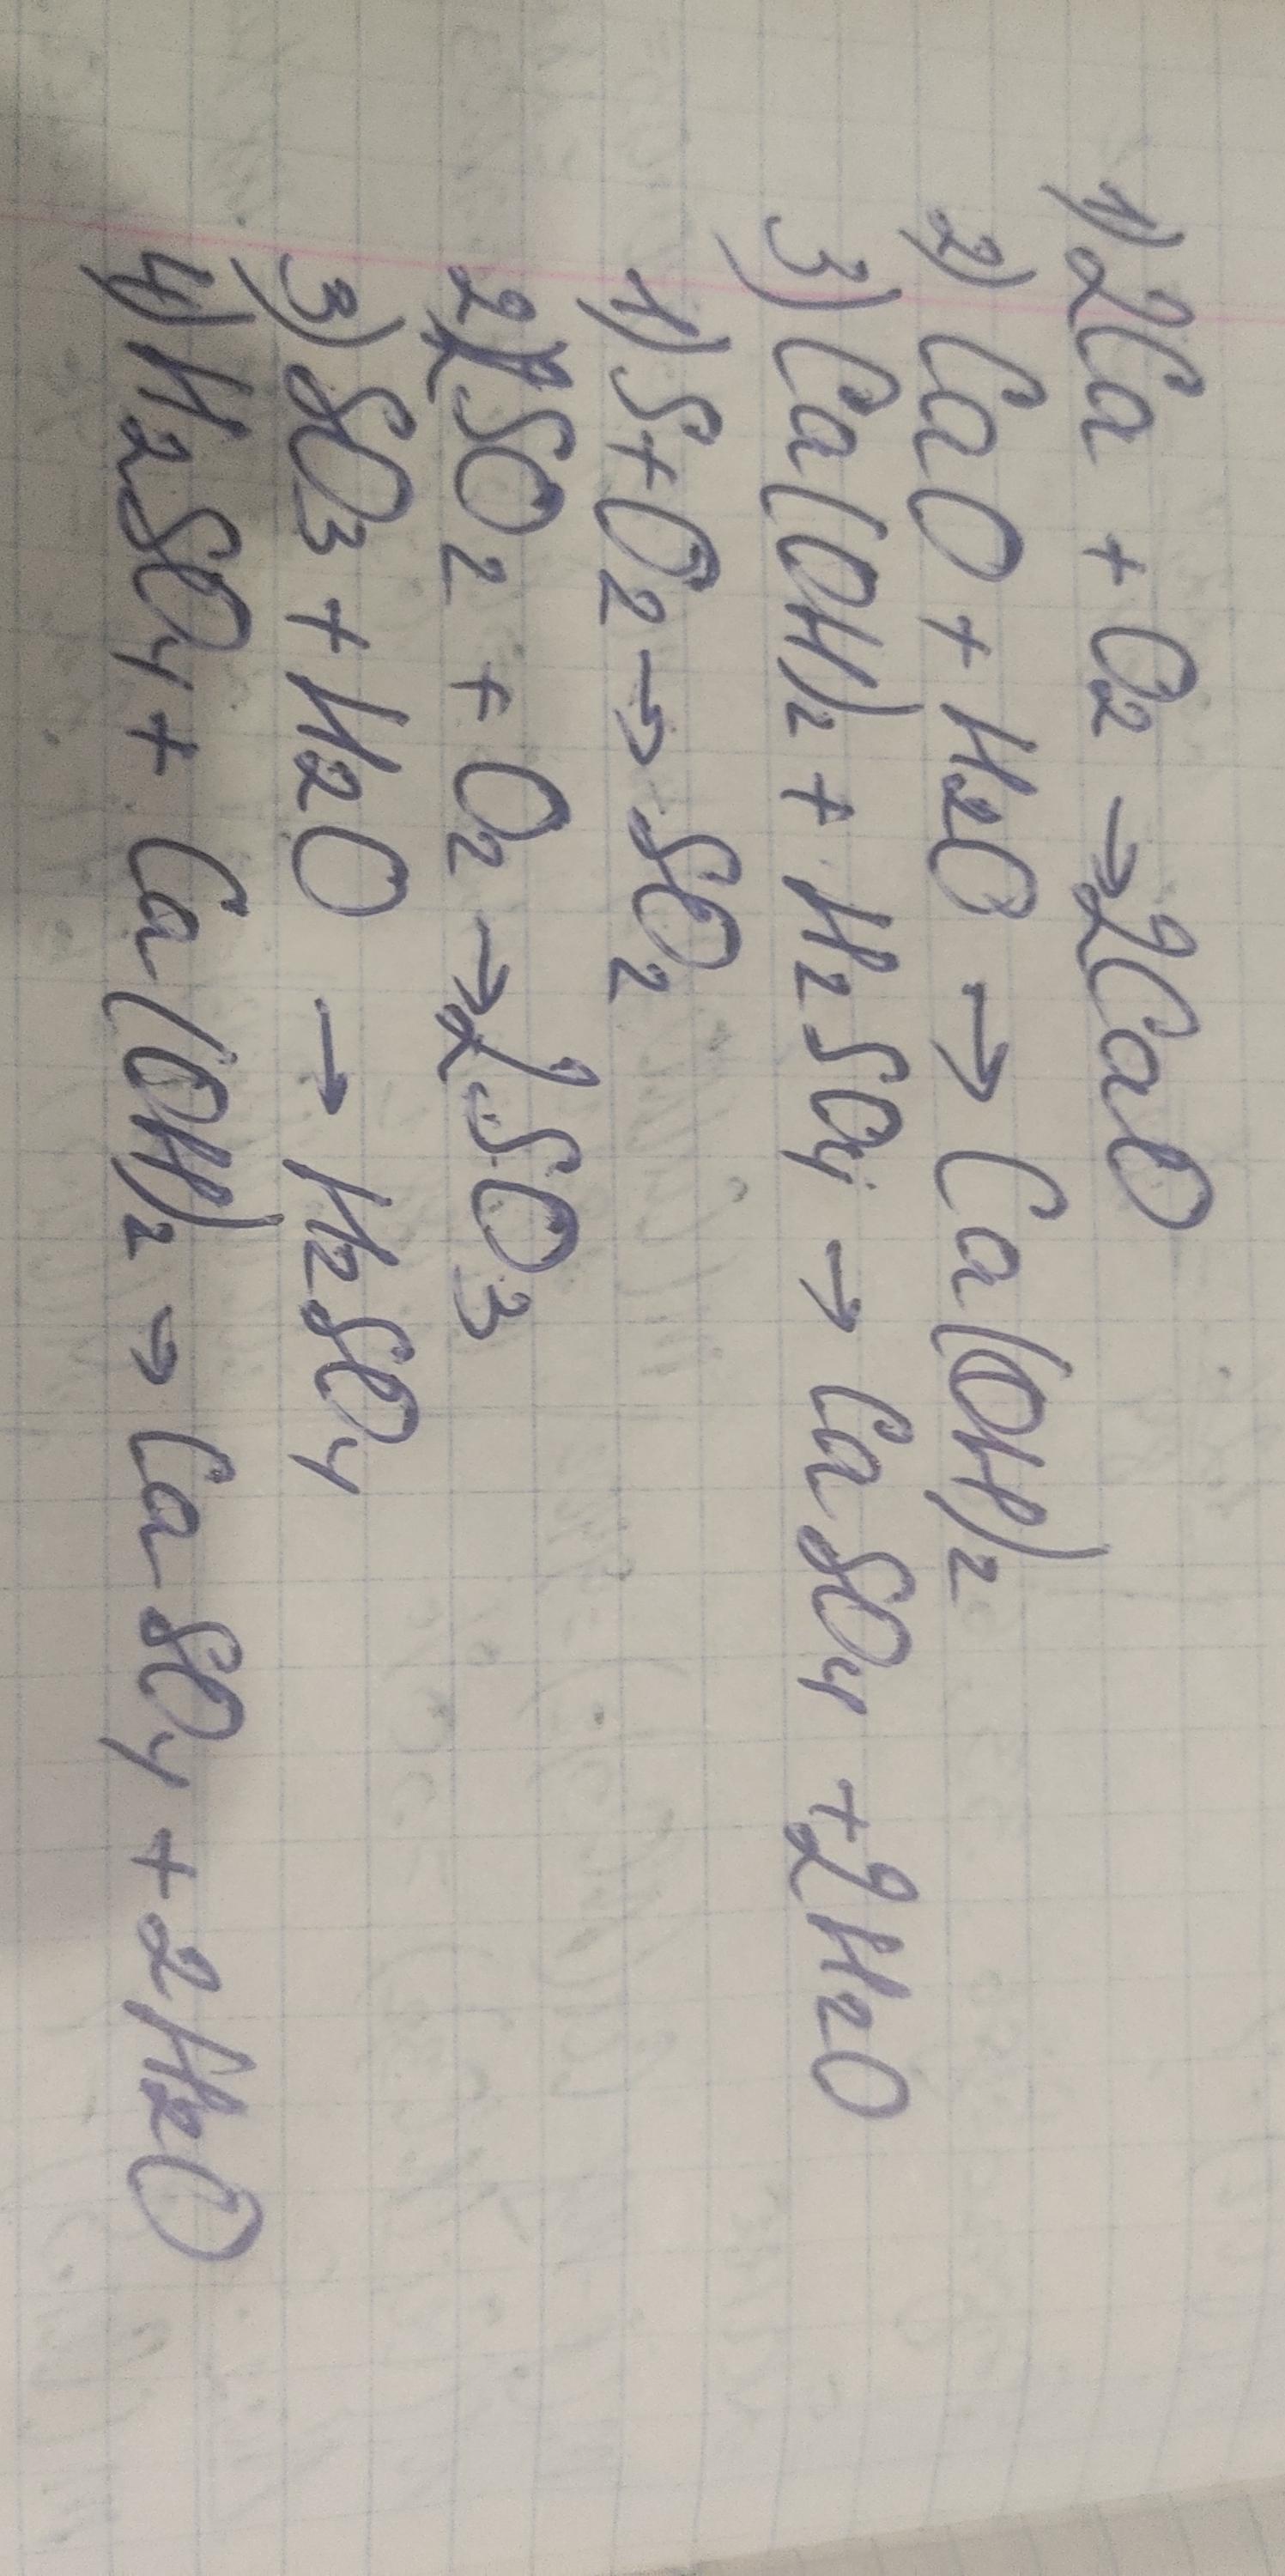 1) 2Ca + O2 → 2CaO
2) CaO + H2O → Ca(OH)2
3) Ca(OH)2 + H2SO4 → CaSO4 + 2H2O
1) S + O2 → SO2
2) 2SO2 + O2 → 2SO3
3) SO3 + H2O → H2SO4
4) H2SO4 + Ca(OH)2 → CaSO4 + 2H2O